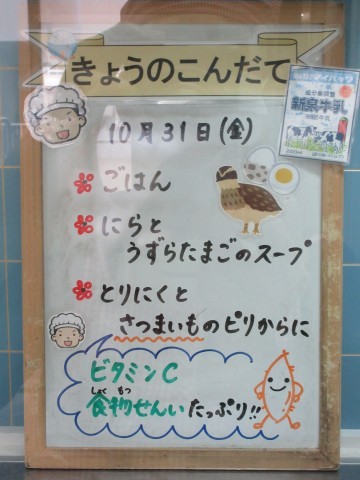 きょうのこんだて
10月31日(金)
新泉牛乳
ごはん
にらと
うずらたまごのスープ
とりにくと
さつまいものピリからに
ビタミンC
しょく もつ
食物せんい たっぷり!!